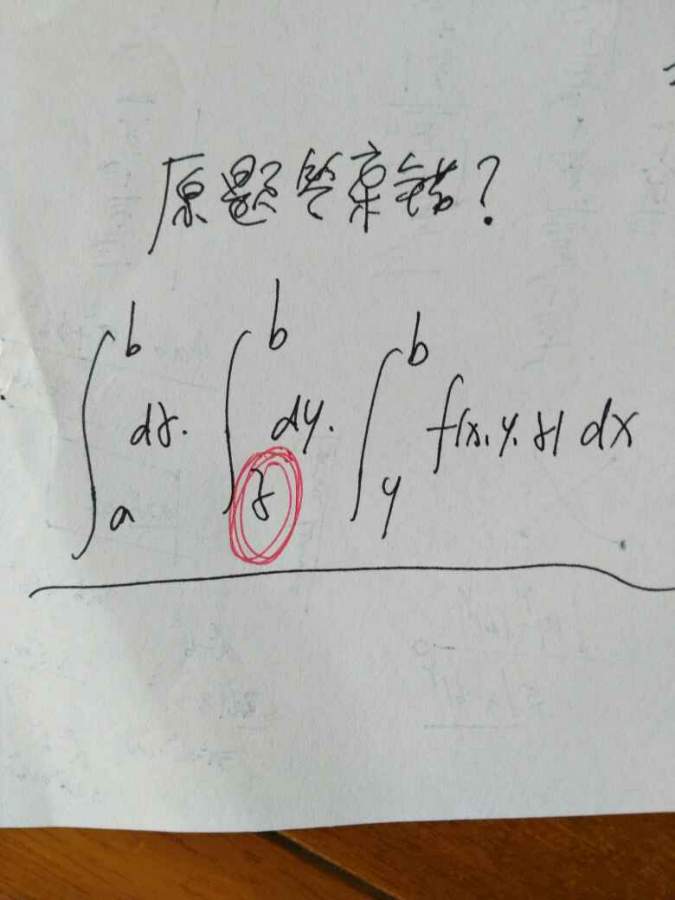 原题答案错?
∫_a^b dz. ∫_z^b dy. ∫_y^b f(x,y,z) dx